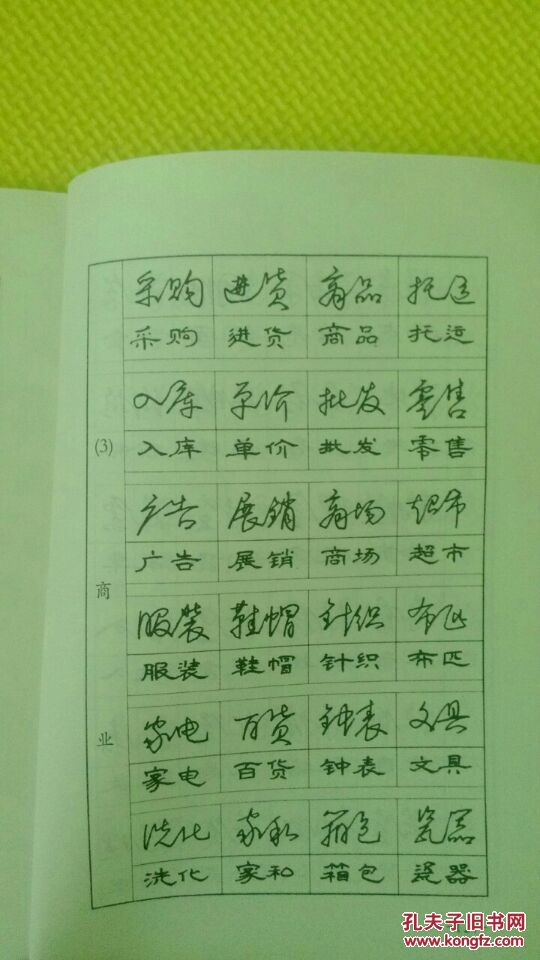 采购 进货 商品 托运
采购 进货 商品 托运
入库 单价 批发 零售
(3)
入库 单价 批发 零售
广告 展销 商场 超市
广告 展销 商场 超市
商
服装 鞋帽 针织 布匹
服装 鞋帽 针织 布匹
家电 百货 钟表 文具
业
家电 百货 钟表 文具
洗化 家和 箱包 瓷器
洗化 家和 箱包 瓷器
孔夫子旧书网
www.kongfz.com